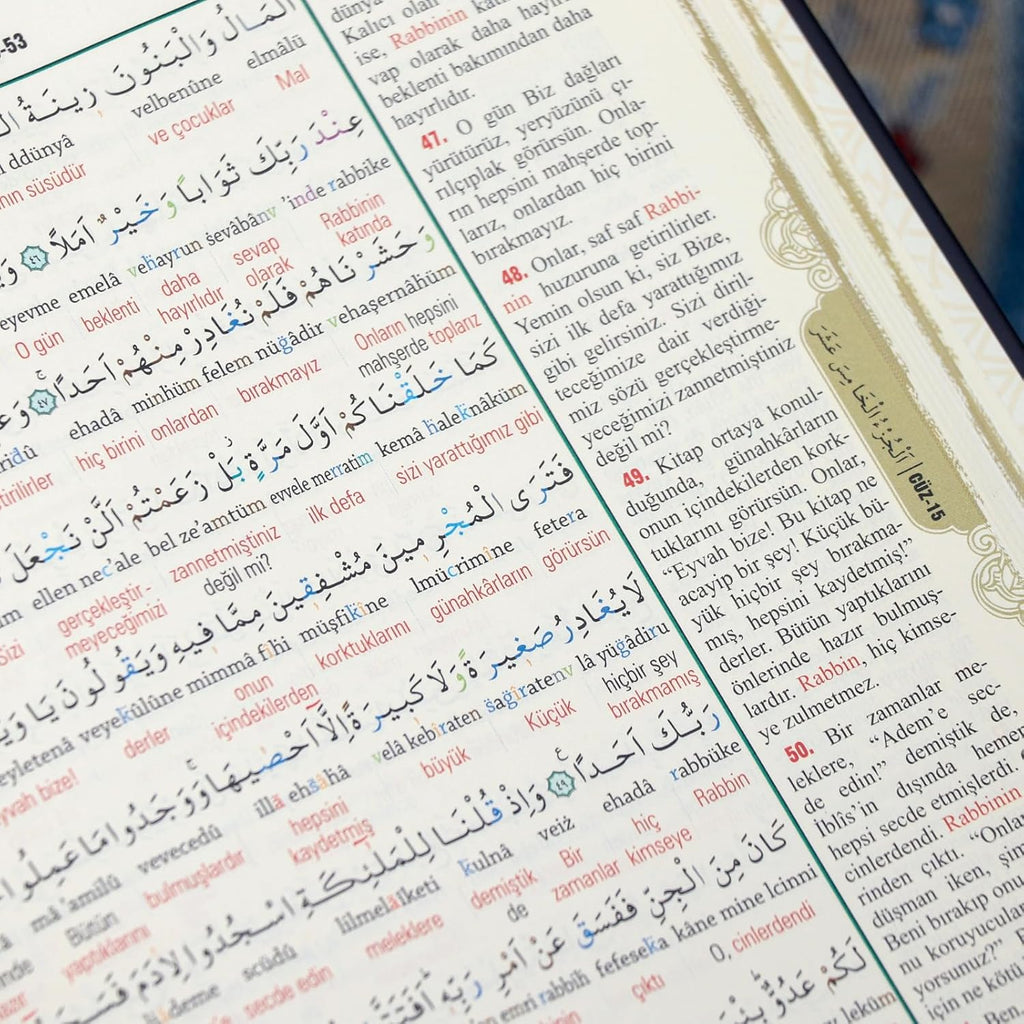 -53
اَلْمَالُ وَالْبَنُونَ زِينَةُ
elmâlü velbenûne
ddünyâ
Mal ve çocuklar
nın süsüdür
عِنْدَ رَبِّكَ ثَوَاباً وَخَيْرٌ اَمَلاً ﴿٤٦﴾
'inde rabbike vehayrun sevâbânv emelâ eyevme
Rabbinin katında sevap olarak daha hayırlıdır beklenti O gün
وَحَشَرْنَاهُمْ فَلَمْ نُغَادِرْ مِنْهُمْ اَحَدًا ﴿٤٧﴾
vehaşernâhüm felem nügâdir minhüm ehadâ
Onların hepsini mahşerde toplarız bırakmayız onlardan hiç birini
كَمَا خَلَقْنَاكُمْ اَوَّلَ مَرَّةٍ بَلْ زَعَمْتُمْ اَلَّنْ نَجْعَلَ
kemâ haleknâküm evvele merratim bel ze'amtüm ellen nec'ale
sizi yarattığımız gibi ilk defa zannetmiştiniz değil mi? gerçekleştir- meyeceğimizi Sizi
فَتَرَى الْمُجْرِمِينَ مُشْفِقِينَ مِمَّا فِيهِ وَيَقُولُونَ يَا
fetera lmücrimîne müşfikîne mimmâ fîhi veyekûlûne
görürsün günahkârların korktuklarını onun içindekilerden derler
لَا يُغَادِرُ صَغِيرَةً وَلَا كَبِيرَةً اِلَّا اَحْصٰيهَا وَوَجَدُوا مَا عَمِلُوا
lâ yügâdiru sagîratenv velâ kebîraten illâ ehsâhâ vevecedû mâ 'amilû
hiçbir şey bırakmamış Küçük büyük hepsini kaydetmiş bulmuşlardır Bütün yaptıklarını
رَبُّكَ اَحَدًا ﴿٤٩﴾ وَاِذْ قُلْنَا لِلْمَلٰئِكَةِ اسْجُدُوا لِاٰدَمَ
rabbüke ehadâ veiz kulnâ lilmelâiketi scüdû
Rabbin hiç kimseye Bir zamanlar demiştik de meleklere secde edin
كَانَ مِنَ الْجِنِّ فَفَسَقَ عَنْ اَمْرِ رَبِّهِ
kâne mine lcinni fefeseka emri rabbih
O, cinlerdendi çıktı
لَكُمْ عَدُوٌّ
leküm
dünya
Kalıcı olan
ise, Rabbinin
vap olarak daha hayırlı
beklenti bakımından daha
hayırlıdır.
47. O gün Biz dağları
yürütürüz, yeryüzünü çı-
rılçıplak görürsün. Onla-
rın hepsini mahşerde top-
larız, onlardan hiç birini
bırakmayız.
48. Onlar, saf saf Rabbi-
nin huzuruna getirilirler.
Yemin olsun ki, siz Bize,
sizi ilk defa yarattığımız
gibi gelirsiniz. Sizi diril-
teceğimize dair verdiği-
miz sözü gerçekleştirme-
yeceğimizi zannetmiştiniz
değil mi?
49. Kitap ortaya konul-
duğunda, günahkârların
onun içindekilerden kork-
tuklarını görürsün. Onlar,
“Eyvah bize! Bu kitap ne
acayip bir şey! Küçük bü-
yük hiçbir şey bırakma-
mış, hepsini kaydetmiş!”
derler. Bütün yaptıklarını
önlerinde hazır bulmuş-
lardır. Rabbin, hiç kimse-
ye zulmetmez.
50. Bir zamanlar me-
leklere, “Adem’e sec-
de edin!” demiştik de,
İblis’in dışında hemen
hepsi secde etmişlerdi.
cinlerdendi. Rabbinin
rinden çıktı. “Onlar
düşman iken,
Beni bırakıp onu
nu koruyucular
yorsunuz?”
için ne kötü
Ben,
اَلْجُزْءُ الْخَامِسَ عَشَرَ | CÜZ-15